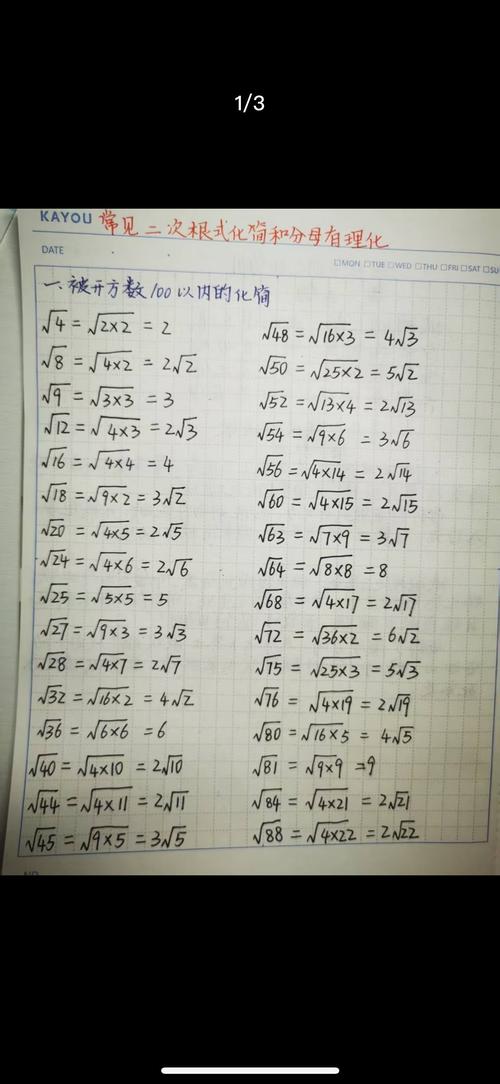 1/3
KAYOU 常见二次根式化简和分母有理化
DATE
□MON □TUE □WED □THU □FRI □SAT □SU
一.被开方数100以内的化简
√4 = √2×2 = 2
√8 = √4×2 = 2√2
√9 = √3×3 = 3
√12 = √4×3 = 2√3
√16 = √4×4 = 4
√18 = √9×2 = 3√2
√20 = √4×5 = 2√5
√24 = √4×6 = 2√6
√25 = √5×5 = 5
√27 = √9×3 = 3√3
√28 = √4×7 = 2√7
√32 = √16×2 = 4√2
√36 = √6×6 = 6
√40 = √4×10 = 2√10
√44 = √4×11 = 2√11
√45 = √9×5 = 3√5
√48 = √16×3 = 4√3
√50 = √25×2 = 5√2
√52 = √13×4 = 2√13
√54 = √9×6 = 3√6
√56 = √4×14 = 2√14
√60 = √4×15 = 2√15
√63 = √7×9 = 3√7
√64 = √8×8 = 8
√68 = √4×17 = 2√17
√72 = √36×2 = 6√2
√75 = √25×3 = 5√3
√76 = √4×19 = 2√19
√80 = √16×5 = 4√5
√81 = √9×9 = 9
√84 = √4×21 = 2√21
√88 = √4×22 = 2√22